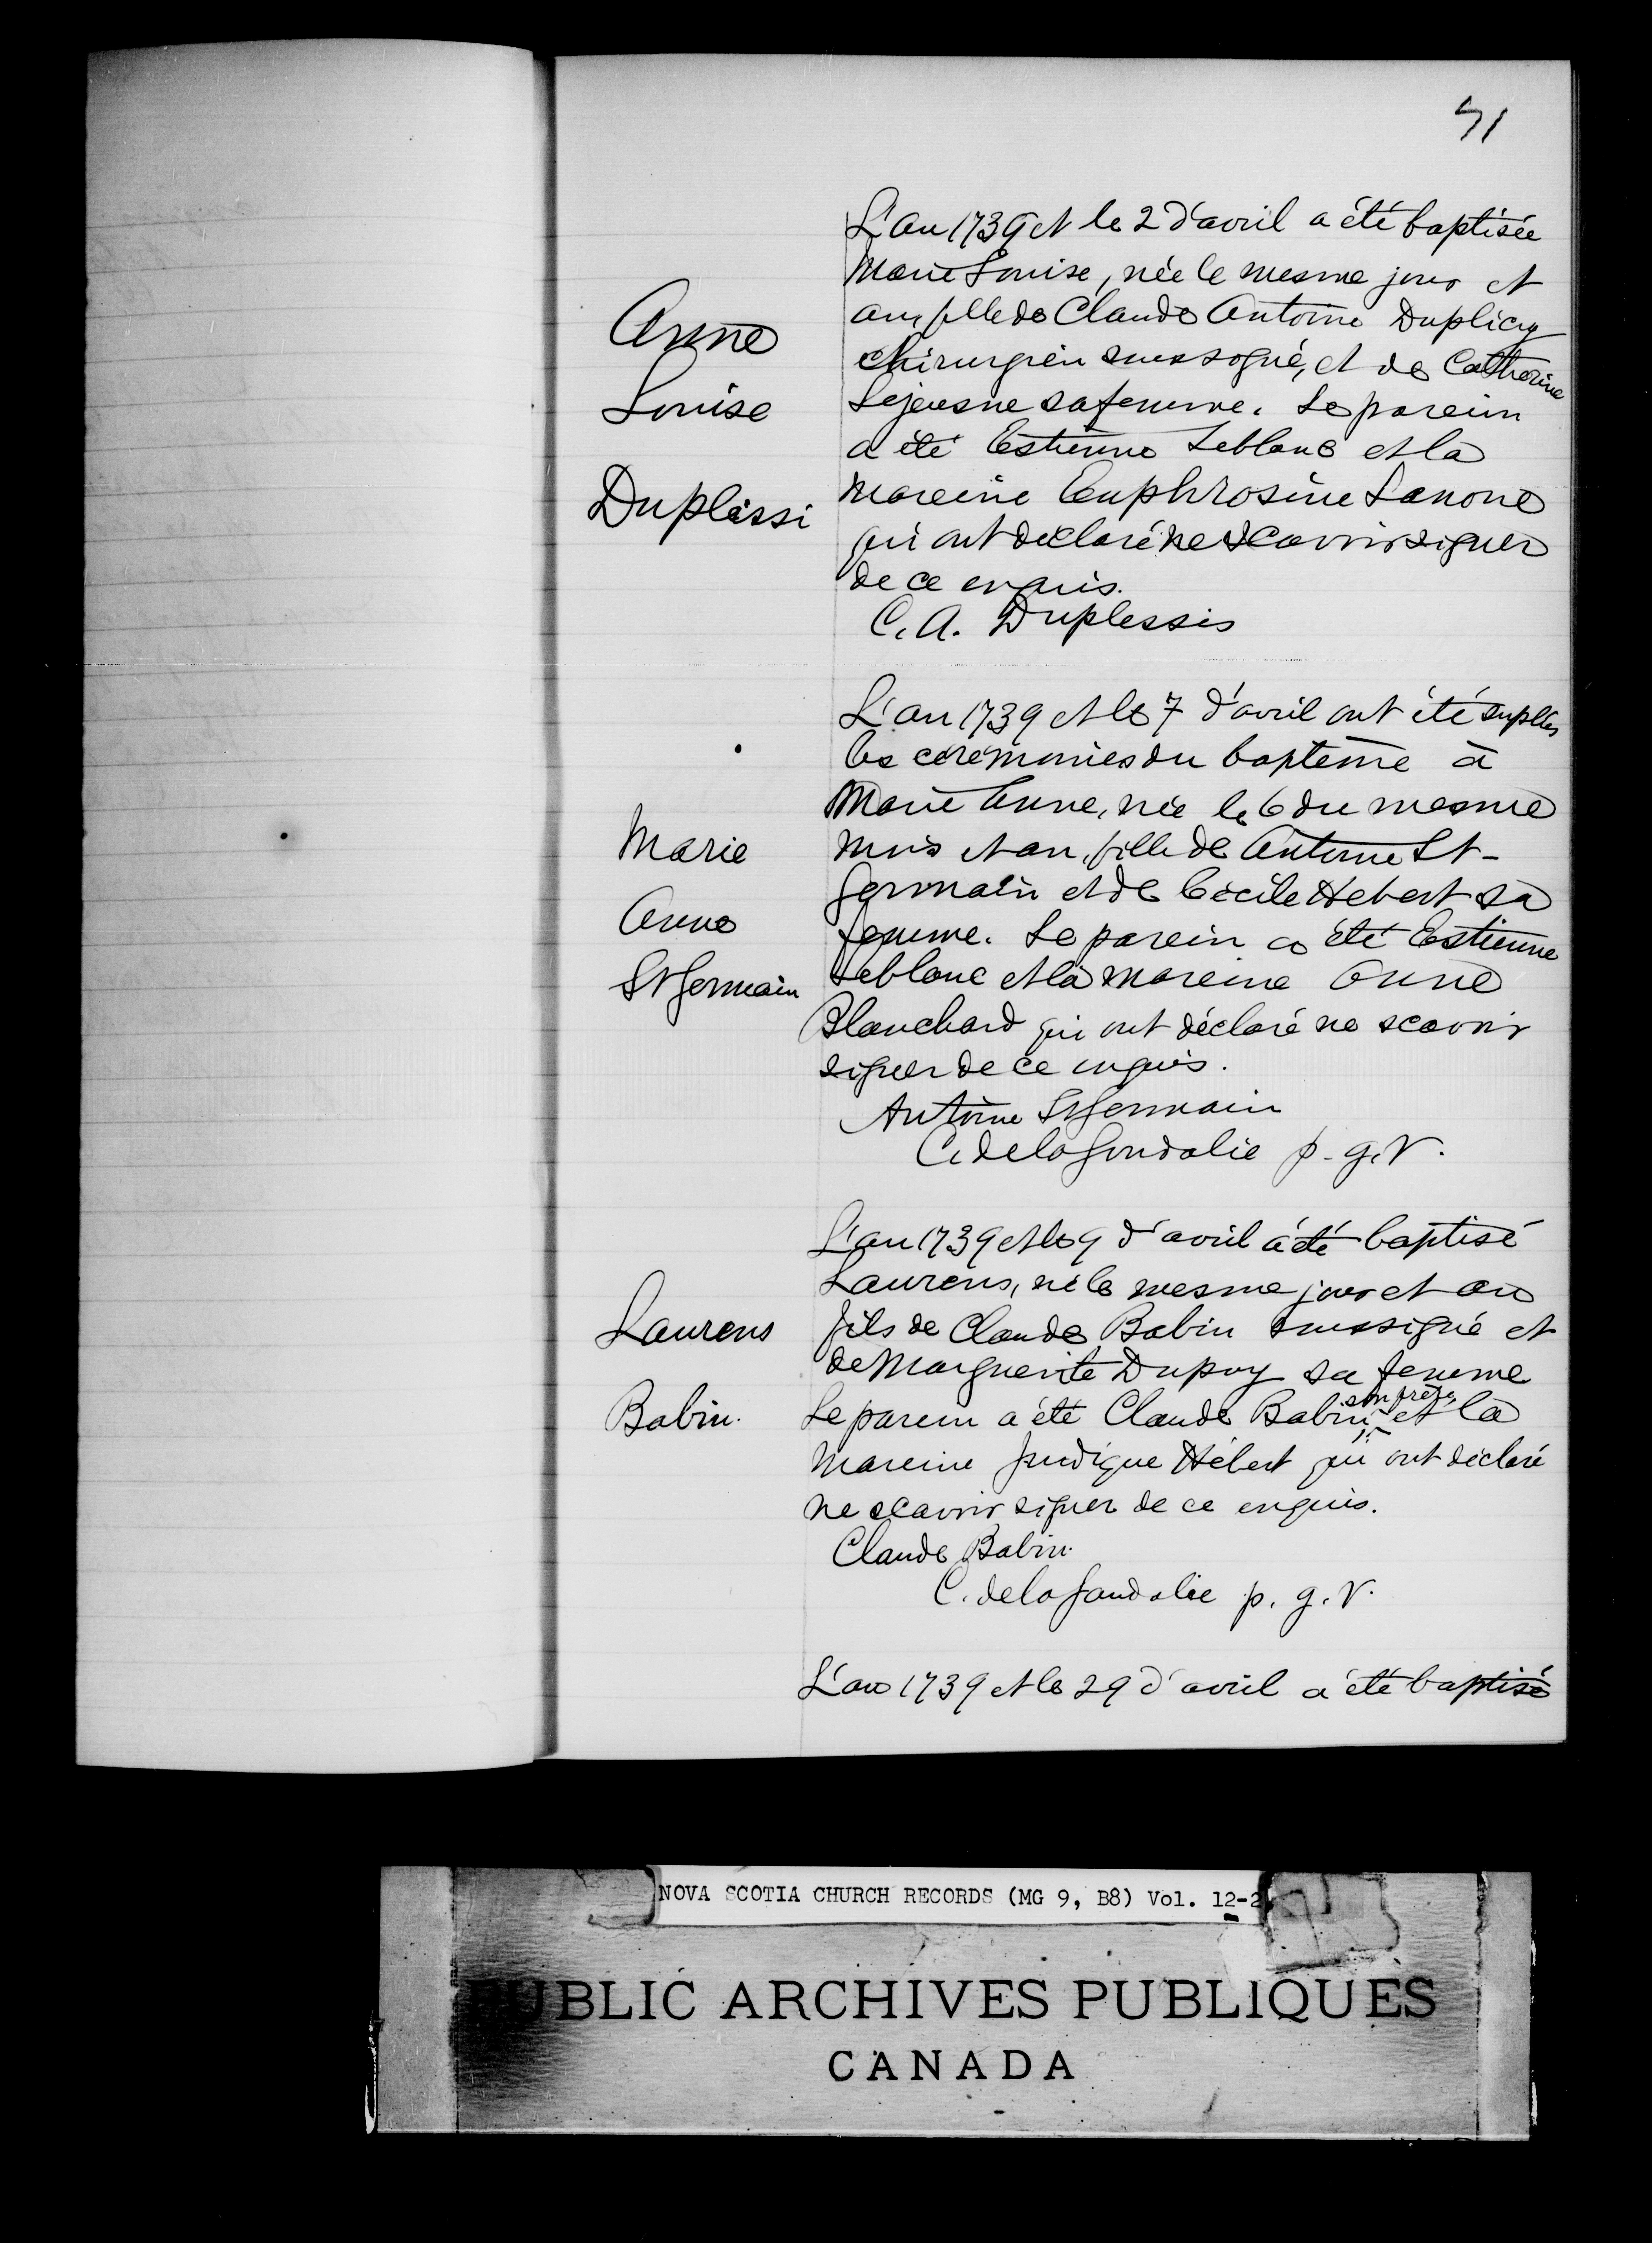 71
L'an 1739 et le 2 d'avril a été baptisée
Marie Louise, née le mesme jour et
an, fille de Claude Antoine Duplicy
chirurgien soussogné, et de Catherine
Lejeusne sa femme. Le parein
a été Estienne Leblanc et la
mareine Euphrosine Lanoue
qui ont déclaré ne scavoir signer
de ce enquis.
C. A. Duplessis
Anne
Louise
Duplissi
L'an 1739 et le 7 d'avril ont été suplées
les cérémonies du baptême à
Marie Anne, née le 6 du mesme
mois et an, fille de Antoine St-
Germain et de Cécile Hebert sa
femme. Le parein a été Estienne
Leblanc et la mareine Anne
Blanchard qui ont déclaré ne scavoir
signer de ce enquis.
Antoine St Germain
C. de la Goudalie p. g. V.
Marie
Anne
St Germain
L'an 1739 et le 9 d'avril a été baptisé
Laurens, né le mesme jour et an
fils de Claude Babin soussigné et
de Marguerite Dupuy sa femme
Le parein a été Claude Babin, son frère, et la
mareine Judique Hébert qui ont déclaré
ne scavoir signer de ce enquis.
Claude Babin.
C. de la Goudalie p. g. V.
Laurens
Babin.
L'an 1739 et le 29 d'avril a été baptisé
NOVA SCOTIA CHURCH RECORDS (MG 9, B8) Vol. 12-2
PUBLIC ARCHIVES PUBLIQUES
CANADA